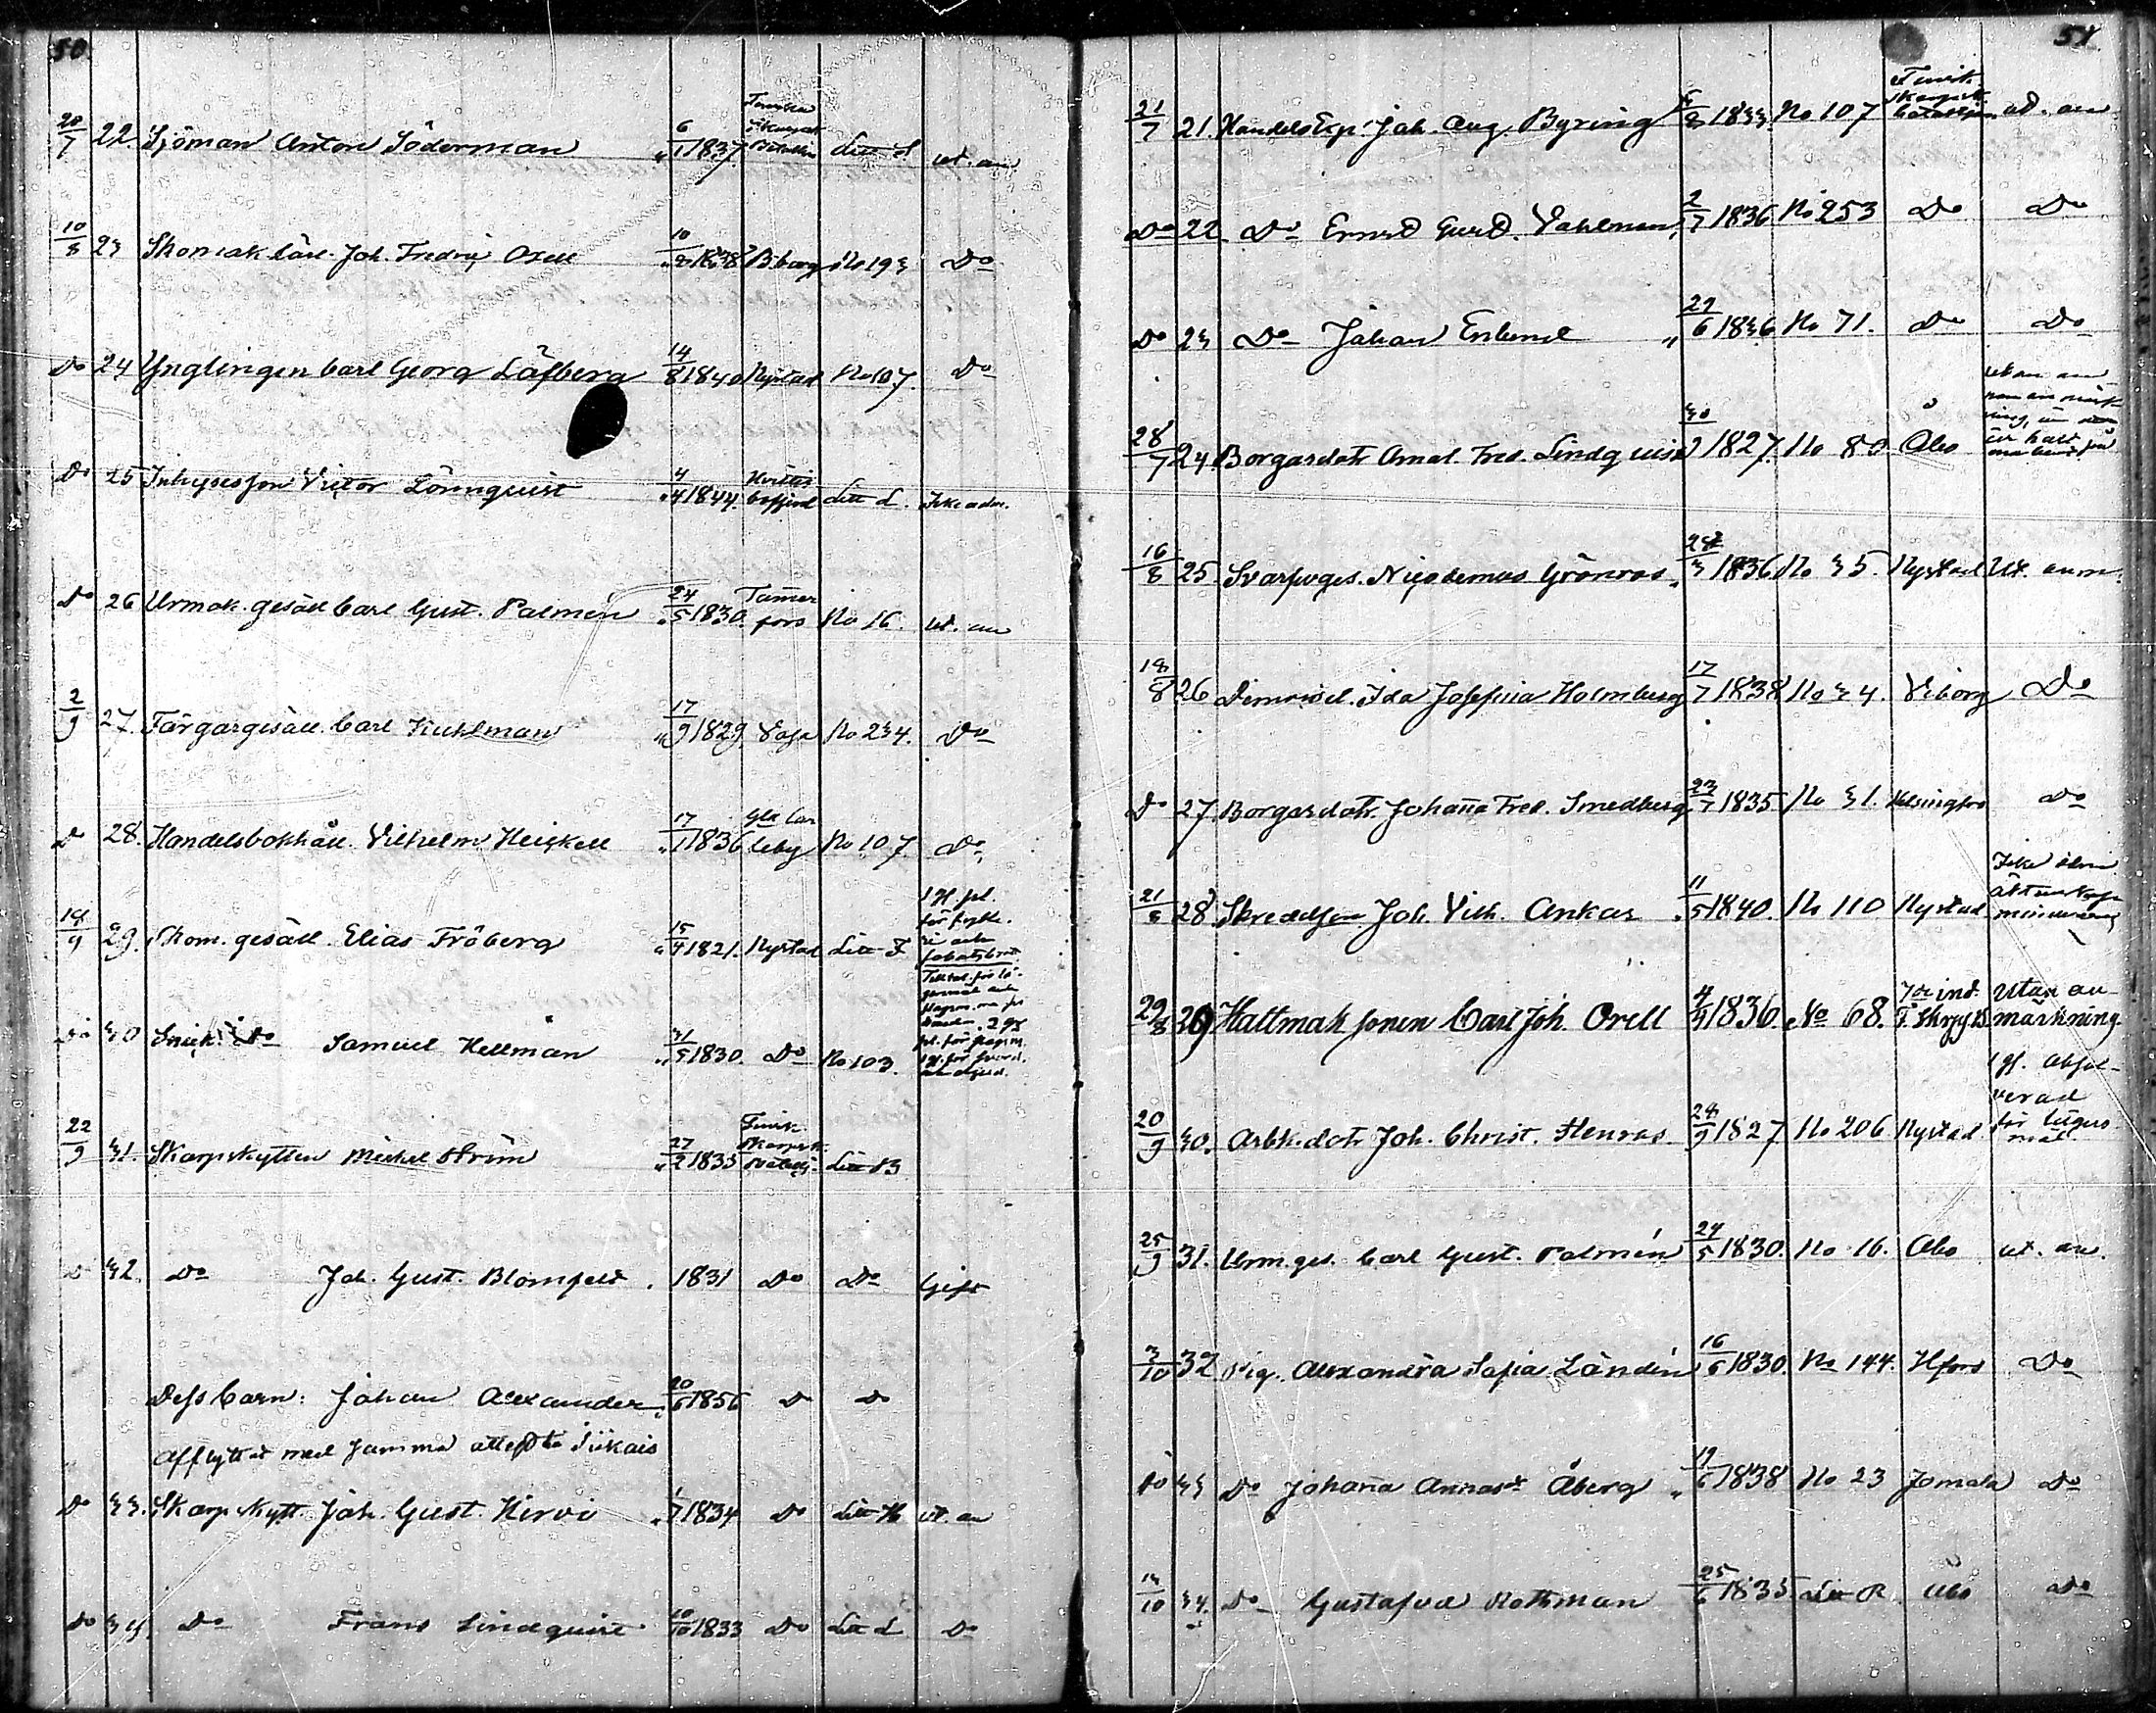 50.
20/7 22. Sjöman Anton Söderman 6/1 1837. Finska Skarpsk. Bataillon Litt S. ut. an
10/8 23 Skomak. lärl. Joh. Fredrik Oxell 10/8 1838 B:borg No 193 Do
Do 24 Ynglingen Carl Georg Löfberg 14/8 1840 Nystad No 107. Do
Do 25 Inhyses son Victor Lönnquist 4/4 1844. Litt L. Icke adm.
Do 26 Urmak. gesäll Carl Gust. Palmén 24/5 1830. Tammerfors No 16. ut. an
2/9 27. Färgargesäll. Carl Kuhlman 17/9 1829 Vasa No 234. Do
Do 28. Handelsbokhåll. Vilhelm Heickell 17/1 1836 Gla Carleby No 107. Do
14/9 29. Skom. gesäll. Elias Fröberg 15/4 1821. Nystad Litt F 1 g. pl. för fylle.
Do 30 Snick. Do Samuel Hellman 31/5 1830. Do No 103.
22/9 31. Skarpskytten Michel Ström 27/2 1833 Finsk. Skarpsk. Batalj. Litt B
Do 32. Do Joh. Gust. Blomfelt 1831 Do Do Gift
Dess Barn: Johan Alexander 20/6 1856 Do Do
Afflyttat med samma attest till Siikais
Do 33. Skarpskytt. Joh. Gust. Hirvi 1/7 1834 Do Litt H ut. an
Do 34. Do Frans Lindquist 10/10 1833 Do Litt L Do
51.
21/7 21. Handels Exp. Joh. Aug. Byring 1833. No 107 Finsk. Skarpsk. bataljon. ut. an
Do 22. Do Ernst Gust. Vahlman 2/7 1836 No 253 Do Do
Do 23 Do Johan Enlund 29/6 1836 No 71. Do Do
28/7 24 Borgardotr Amal. Fred. Lindquist 30/7 1827. No 80 Åbo utan annan anmärkning, än
16/8 25 Svarfvges. Nicodemus Grönroos 1836 No 35. Nystad Ut. anm.
18/8 26 Demoisel. Ida Josefina Holmberg 17/7 1838 No 24. Viborg Do
Do 27. Borgardotr. Johanna Fred. Smedberg 23/7 1835 No 31. Helsingfors Do
21/8 28 Skredds son Joh. Vilh. Ankar 11/5 1840. No 110 Nystad Icke
29/8 29 Hattmak sonen Carl Joh. Orell 4/4 1836. No 68. 7de ind. F. Skrpsk B. Utan anmärkning
20/9 30. Arbk. dotr Joh. Christ. Henros 28/9 1827 No 206 Nystad 1 g. Absolverad för lägersmål.
25/9 31. Urm. ges. Carl Gust. Palmén 24/5 1830. No 16. Åbo ut. an.
3/10 32 Pig. Alexandra Sofia Landén 16/6 1830. No 144. Hfors Do
Do 33 Do Johanna Annasdr Åberg 19/6 1838 No 23 Jomala Do
14/10 34. Do Gustafva Rothman 25/6 1835 Litt R. Åbo Do